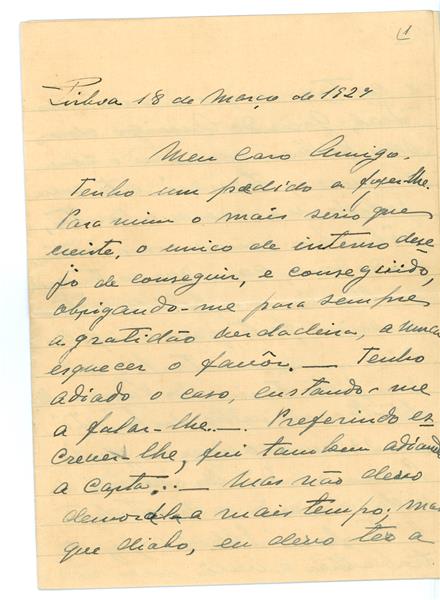 1
Lisboa 18 de Março de 1929
Meu Caro Amigo.
Tenho um pedido a fazer-lhe.
Para mim o mais serio que
existe, o unico de intenso dese-
jo de conseguir, e conseguindo,
obrigando-me para sempre
a gratidão verdadeira, a nunca
esquecer o favôr. — Tenho
adiado o caso, custando-me
a falar-lhe. — Preferindo es-
crever-lhe, fui tambem adiando
a carta... — Mas não devo
demorala mais tempo; mas
que diabo, eu devo ter a